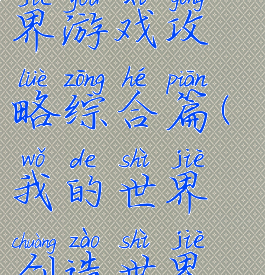 jiè yóu xì gōng
界游戏攻
lüè zōng hé piān
略综合篇(
wǒ de shì jiè
我的世界
chuàng zào shì jiè
创造世界